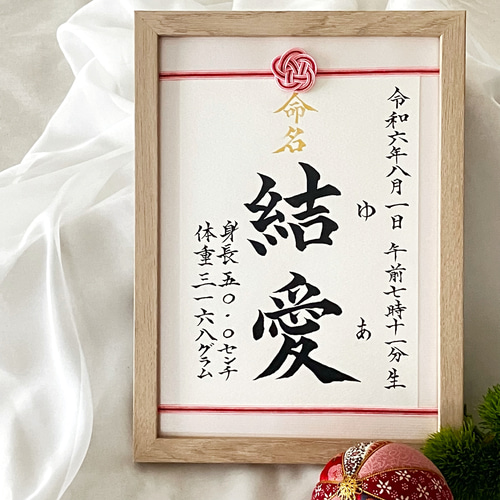 令和六年八月一日 午前七時十一分生
命名
結愛
ゆあ
身長 五〇.〇センチ
体重 三一六八グラム